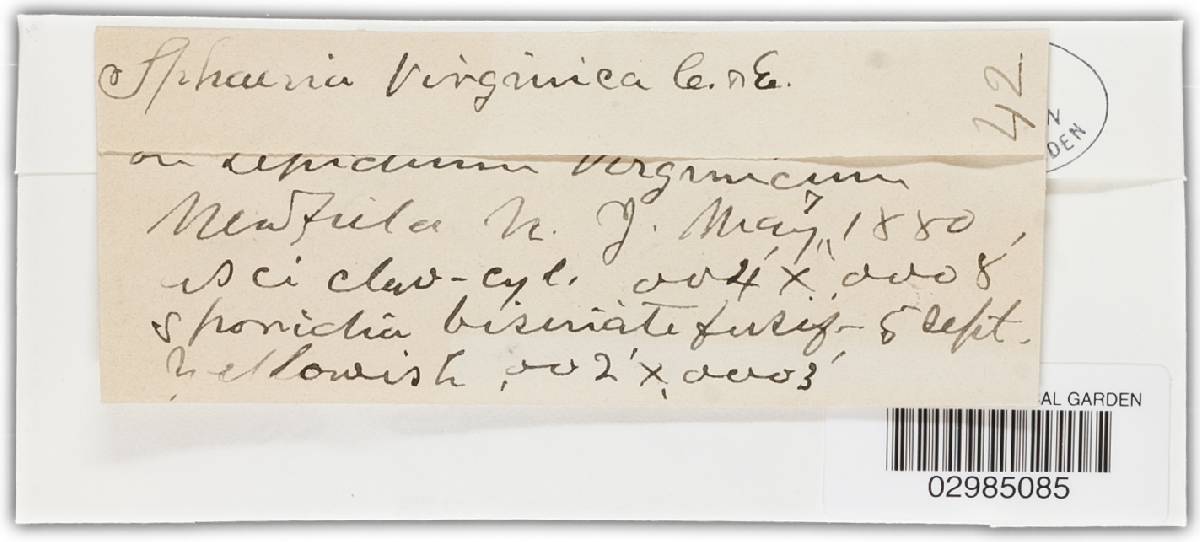 Sphaeria Virginica C. & E.
42
on Lepidium Virginicum
Newfield N. J. May, 1880,
asci clav-cyl. .004' × .0008"
sporidia biseriate fusif- 5 sept.
yellowish .002' × .0003'
N
DEN
AL GARDEN
02985085